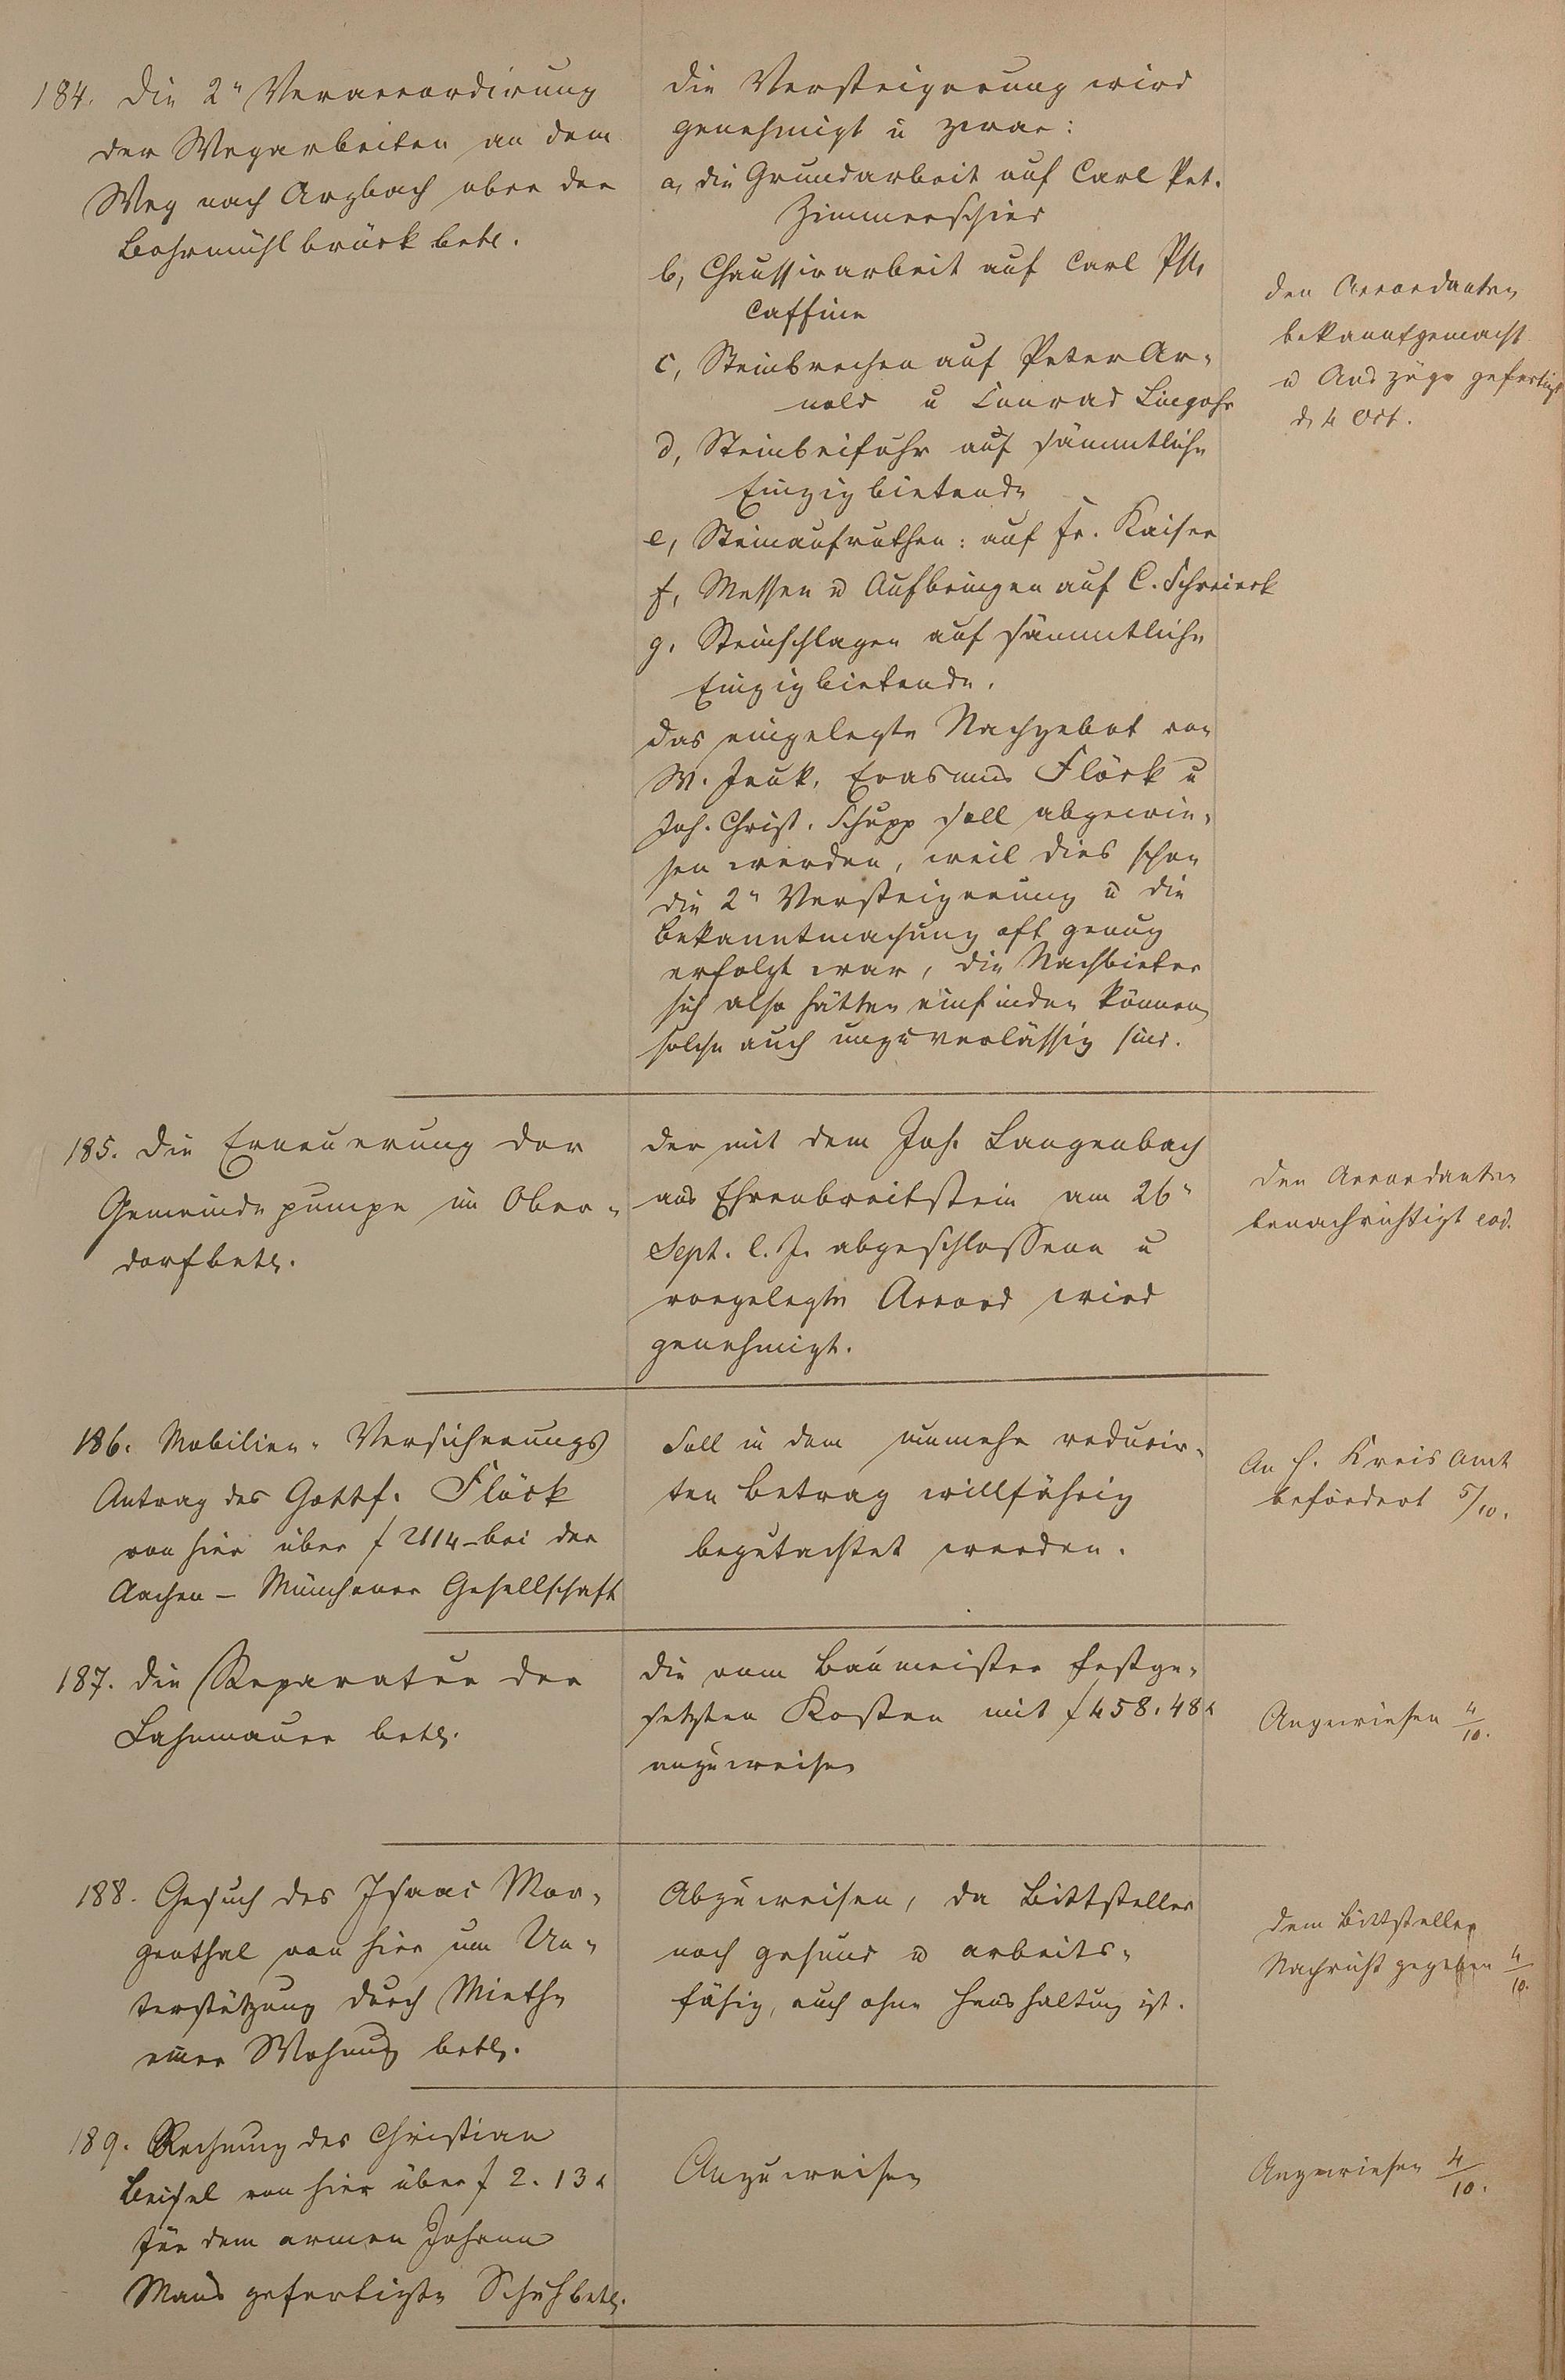 184. Die 2" Veraccordirung
der Wegarbeiten an dem
Weg nach Arzbach ober der
Bohrmühlbrück betr.
Die Versteigerung wird
genehmigt u zwar:
a, die Grundarbeit auf Carl Pet.
Zimmerschied
b, Chaussirarbeit auf Carl Ph.
Caffine
c, Steinbrechen auf Peter Ar-
nold u Conrad Lingohr
d, Steinbeifuhr auf sämmtliche
Einzigbietende
e, Steinaufruthen: auf Fr. Kaiser
f, Messen u Aufbringen auf C. Schreieck
g, Steinschlagen auf sämmtliche
Einzigbietende.
Das eingelegte Nachgebot von
W. Jeuk, Erasmus Flöck u
Joh. Christ. Schupp soll abgewie-
sen werden, weil dies schon
die 2" Versteigerung u die
Bekanntmachung oft genug
erfolgt war, die Nachbieter
sich also hätten einfinden können
solche auch unzuverlässig sind.
Den Accordanten
bekanntgemacht
u Auszüge gefertigt
d. 4 Oct.
185. Die Erneuerung der
Gemeindepumpe im Ober-
dorf betr.
Der mit dem Joh. Langenbach
aus Ehrenbreitstein am 26"
Sept. l. J. abgeschlossene u
vorgelegte Accord wird
genehmigt.
Den Accordanten
benachrichtigt eod.
186. Mobilien-Versicherungs
Antrag des Gottf. Flöck
von hier über f 2114 - bei der
Aachen - Münchener Gesellschaft
Soll in dem nunmehr reducir-
ten Betrag willfährig
begutachtet werden.
An H. Kreisamt
befördert 5/10.
187. Die Reparatur der
Lahnmauer betr.
Die vom Baumeister festge-
setzten Kosten mit f 458. 48 x
anzuweisen
Angewiesen 4/10.
188. Gesuch des Isaac Mor-
genthal von hier um Un-
terstützung durch Miethe
einer Wohnung betr.
Abzuweisen, da Bittsteller
noch gesund u arbeits-
fähig, auch ohne Haushaltung ist.
Dem Bittsteller
Nachricht gegeben 4/10.
189. Rechnung des Christian
Beisel von hier über f 2. 13 x
für dem armen Johann
Maus gefertigte Schuh betr.
Anzuweisen
Angewiesen 4/10.